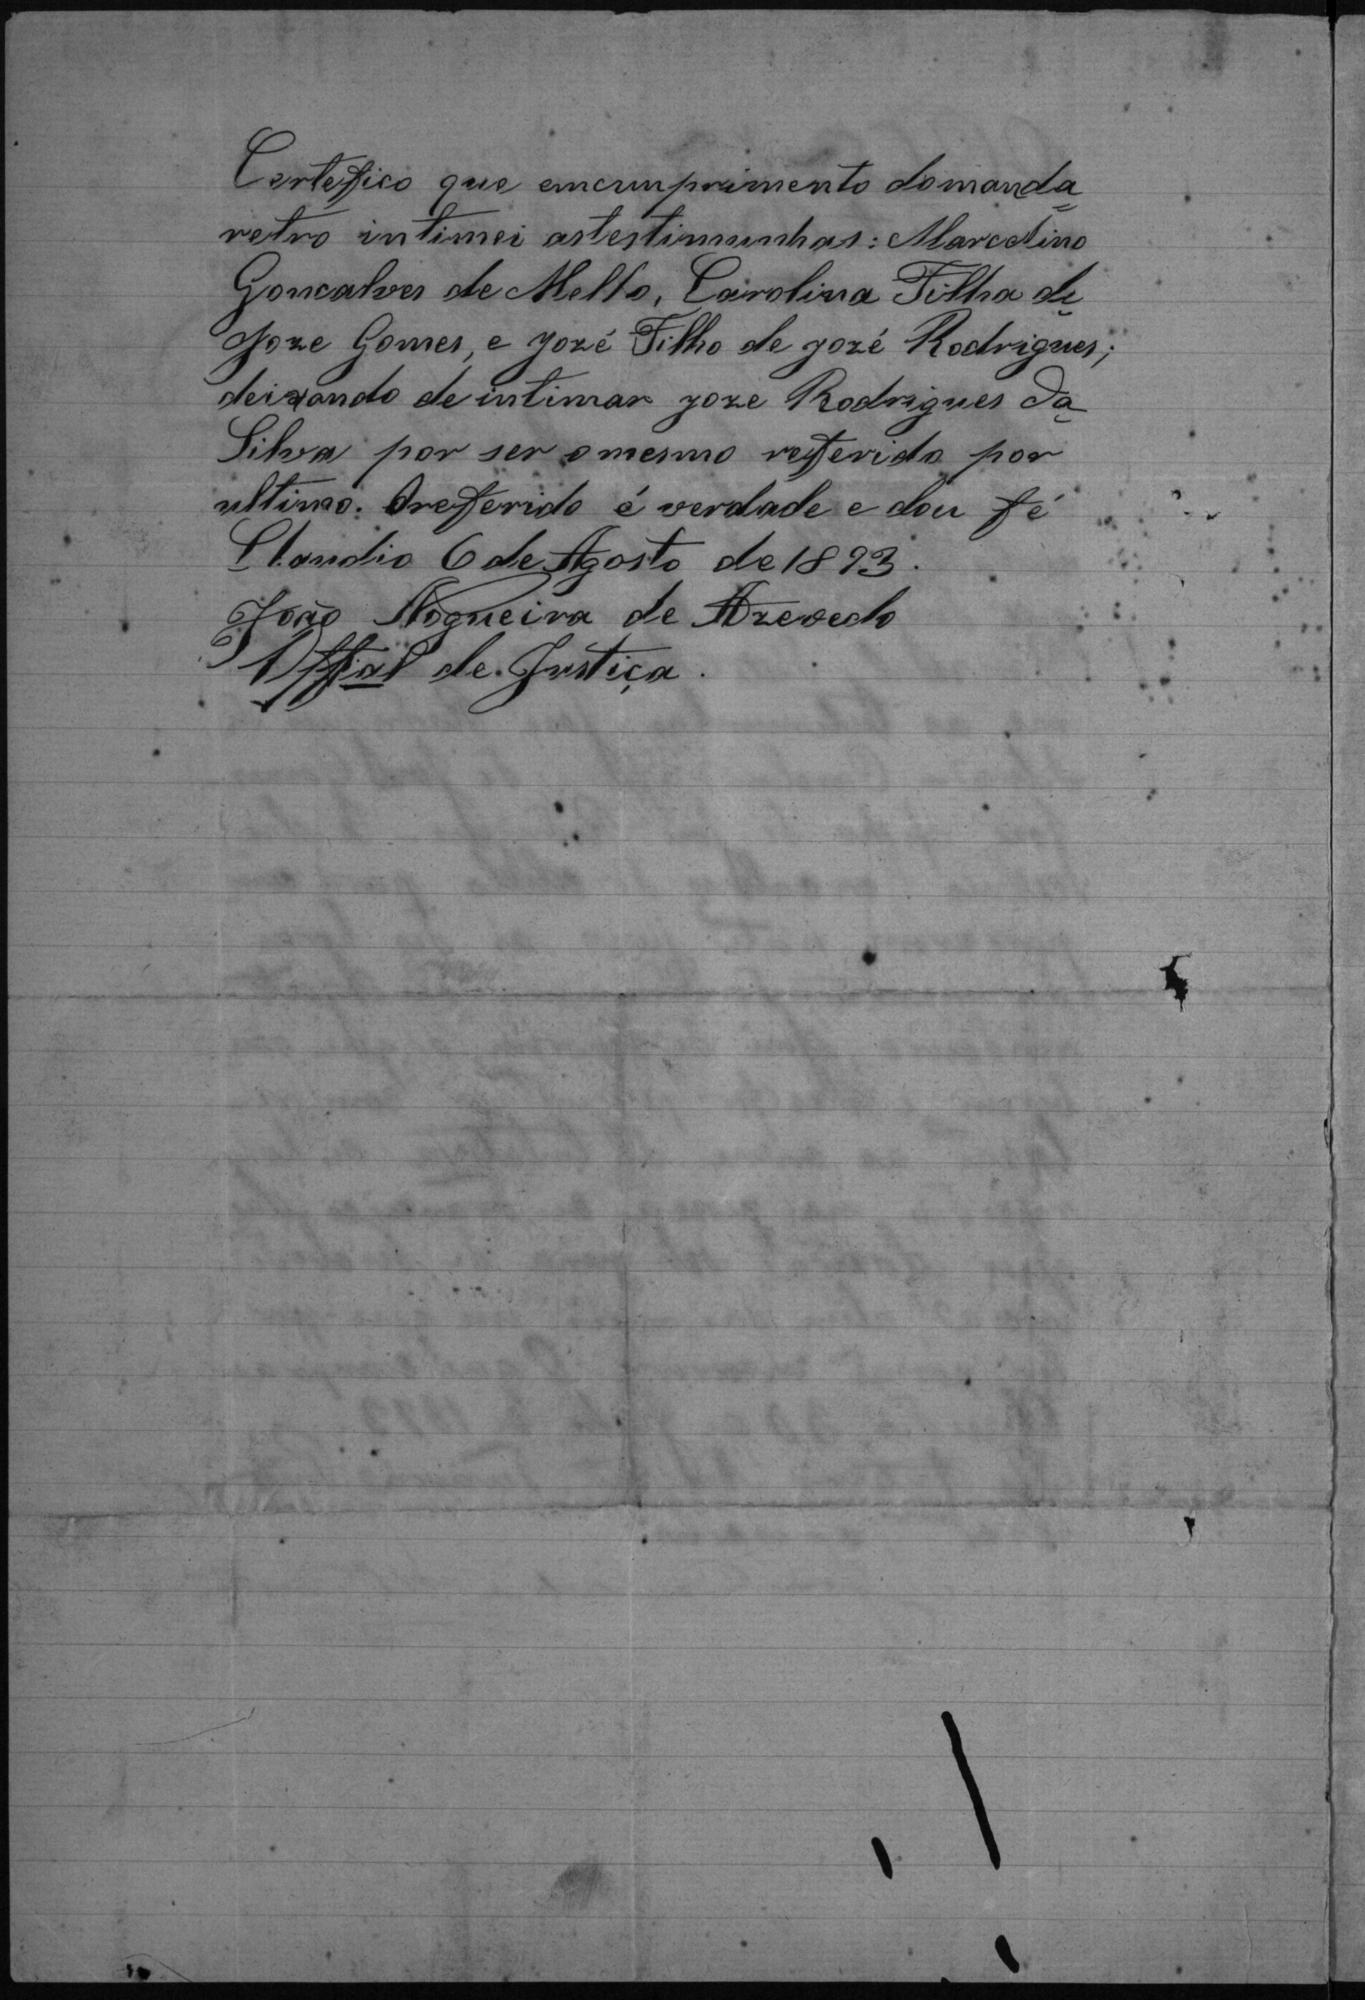 Certefico que emcumprimento domanda
retro intimei astestimunhas: Marcelino
Goncalves de Mello, Carolina Filha de
Joze Gomes, e Jozé Filho de jozé Rodrigues;
deixando de intimar joze Rodrigues da
Silva por ser omesmo referido por
ultimo. Oreferido é verdade e dou fé
Claudio 6 de Agosto de 1893.
João Nogueira de Azevedo
Offial de Justiça.